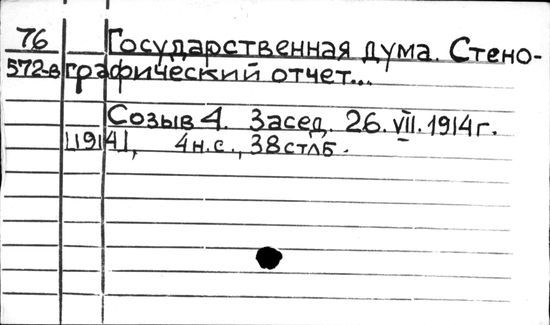 76 Государственная дума. Стено-
572-в графический отчет...
Созыв 4. Засед. 26.VII.1914г.
[1914], 4н.с., 38стлб.